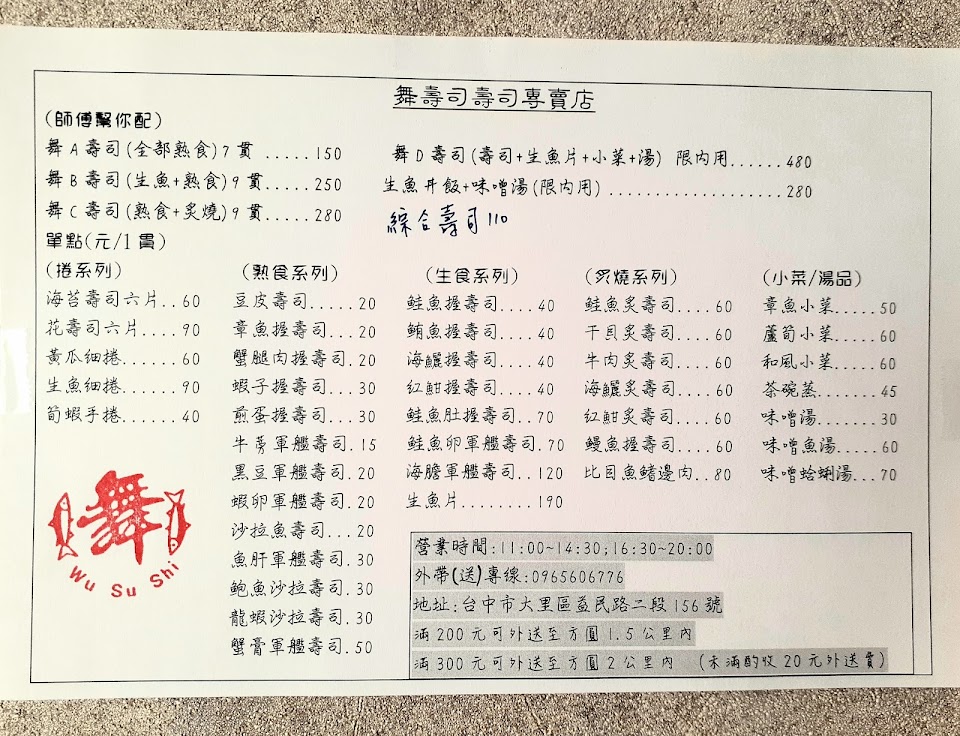 舞壽司壽司專賣店
(師傅幫你配)
舞A壽司(全部熟食)7貫 .....150
舞B壽司(生魚+熟食)9貫.....250
舞C壽司(熟食+炙燒)9貫.....280
舞D壽司(壽司+生魚片+小菜+湯) 限內用......480
生魚丼飯+味噌湯(限內用) ..................280
綜合壽司110
單點(元/1貫)
(捲系列)
海苔壽司六片..60
花壽司六片....90
黃瓜細捲......60
生魚細捲......90
筍蝦手捲......40
(熟食系列)
豆皮壽司.....20
章魚握壽司...20
蟹腿肉握壽司.20
蝦子握壽司...30
煎蛋握壽司...30
牛蒡軍艦壽司.15
黑豆軍艦壽司.20
蝦卵軍艦壽司.20
沙拉魚壽司...20
魚肝軍艦壽司.30
鮑魚沙拉壽司.30
龍蝦沙拉壽司.30
蟹膏軍艦壽司.50
(生食系列)
鮭魚握壽司....40
鮪魚握壽司....40
海鱺握壽司....40
紅魽握壽司....40
鮭魚肚握壽司..70
鮭魚卵軍艦壽司.70
海膽軍艦壽司..120
生魚片........190
(炙燒系列)
鮭魚炙壽司....60
干貝炙壽司....60
牛肉炙壽司....60
海鱺炙壽司....60
紅魽炙壽司....60
鰻魚握壽司....60
比目魚鰭邊肉..80
(小菜/湯品)
章魚小菜.....50
蘆筍小菜.....60
和風小菜.....60
茶碗蒸.......45
味噌湯.......30
味噌魚湯.....60
味噌蛤蜊湯...70
舞
Wu Su Shi
營業時間:11:00~14:30;16:30~20:00
外帶(送)專線:0965606776
地址:台中市大里區益民路二段156號
滿200元可外送至方圓1.5公里內
滿300元可外送至方圓2公里內 (未滿酌收20元外送費)